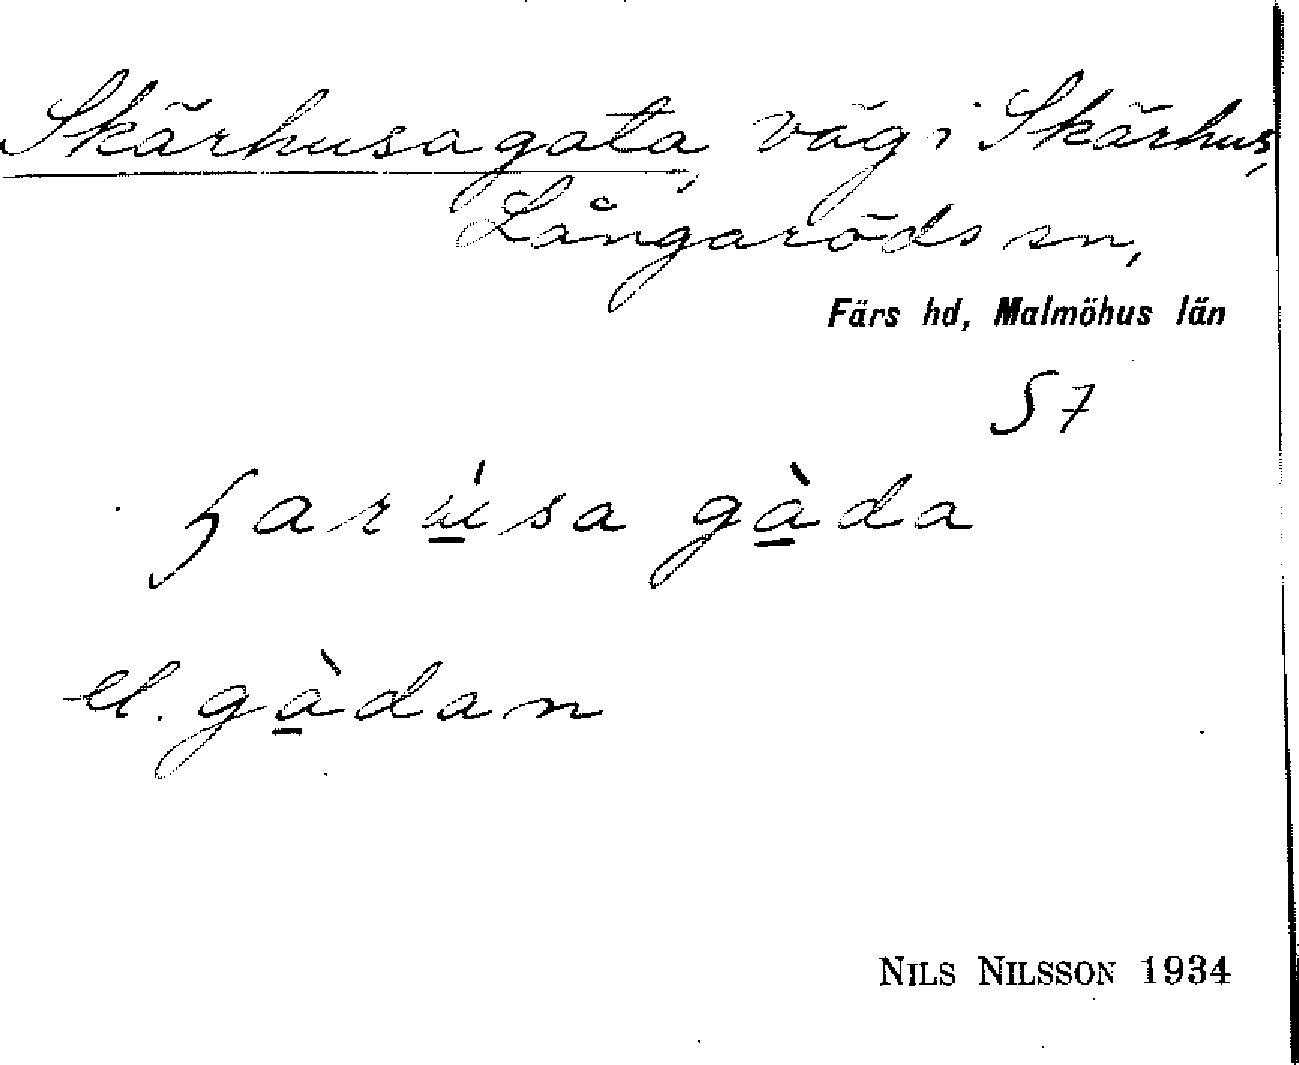 Skärhusagata, väg i Skärhus,
Långaröds sn,
Färs hd, Malmöhus län
S7
gàda
el. gàdan
NILS NILSSON 1934